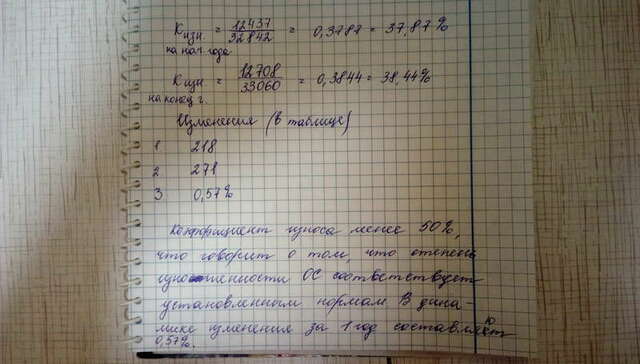 Кизн = 12437/32842 = 0,3787 = 37,87%
на нач. года
Кизн = 12708/33060 = 0,3844 = 38,44%
на конец г.
Изменения (в таблице)
1 218
2 271
3 0,57%
Коэффициент износа менее 50%,
что говорит о том, что степень
изношенности ОС соответствует
установленным нормам В дина-
мике изменения за 1 год составляют
0,57%.